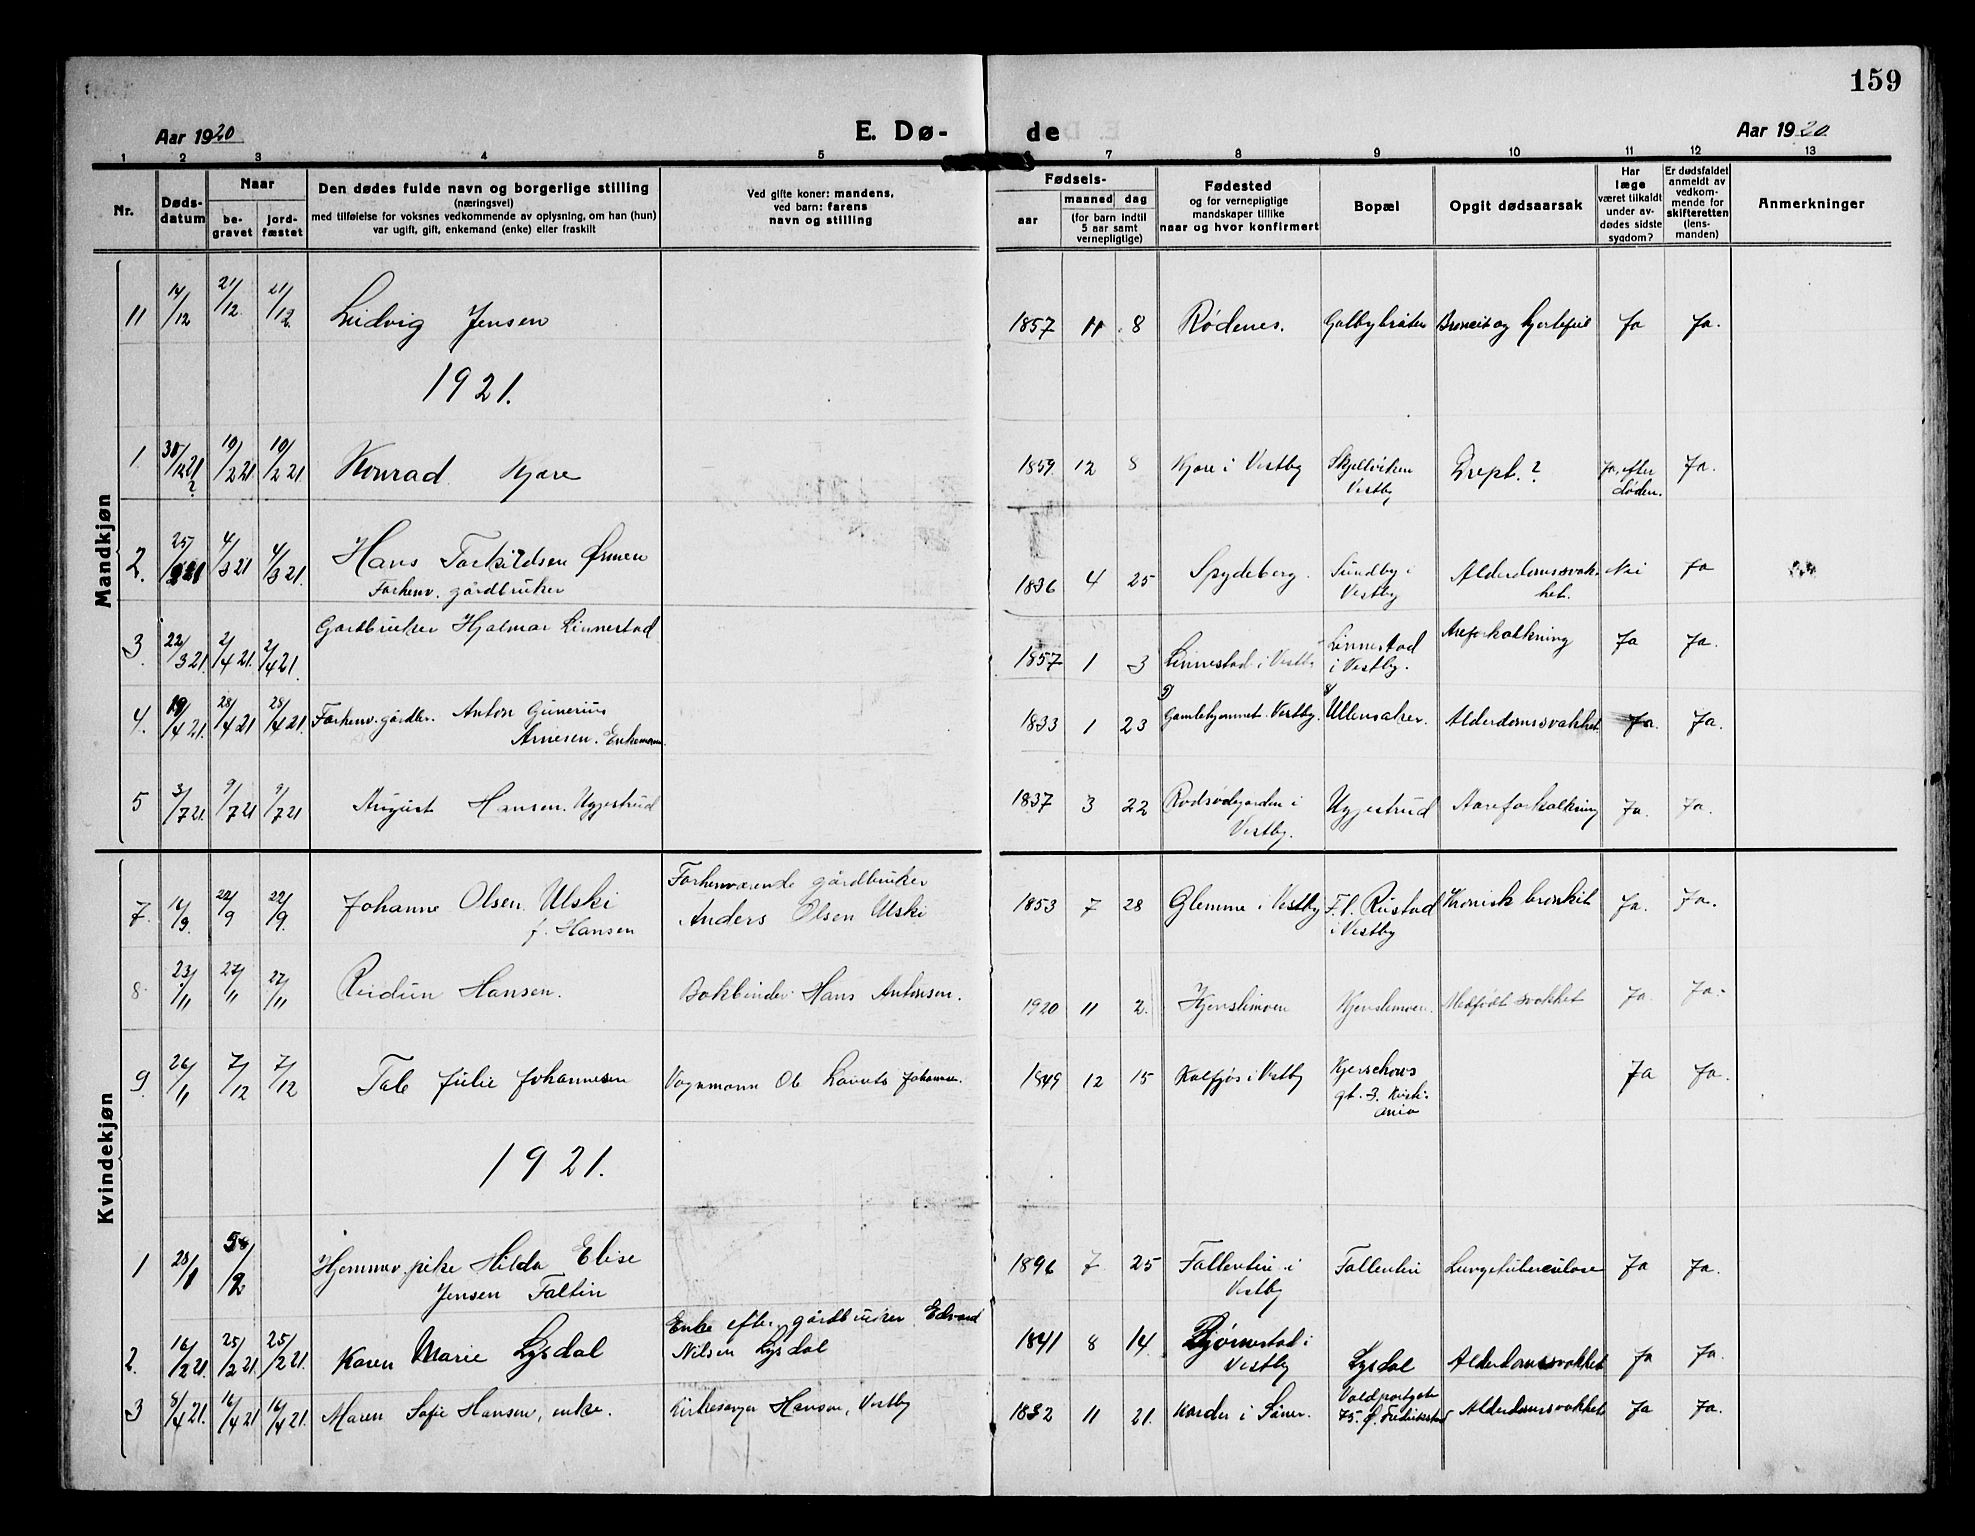 159
Aar 1920
E. Dø-
de
Aar 1920
1 2 3 4 5 6 7 8 9 10 11 12 13
Nr.
Døds-
datum
Naar
be-
gravet
jord-
fæstet
Den dødes fulde navn og borgerlige stilling
(næringsvei)
med tilføielse for voksnes vedkommende av oplysning, om han (hun)
var ugift, gift, enkemand (enke) eller fraskilt
Ved gifte koner: mandens,
ved barn: farens
navn og stilling
Fødsels-
aar
maaned dag
(for barn indtil
5 aar samt
vernepligtige)
Fødested
og for vernepligtige
mandskaper tillike
naar og hvor konfirmert
Bopæl
Opgit dødsaarsak
Har
læge
været tilkaldt
under av-
dødes sidste
sygdom?
Er dødsfaldet
anmeldt av
vedkom-
mende for
skifteretten
(lens-
manden)
Anmerkninger
Mandkjøn
11 14/12 21/12 21/12 Ludvig Jensen 1857 11 8 Rødenes. Galbybråten Bronkit og hjertefeil Ja Ja.
1921.
1. 30/12 21? 19/2 21 19/2 21. Konrad Kjære 1859. 12 8 Kjære i Vestby Skjellviken Drept. ? Ja, efter Ja.
Vestby døden.
2. 25/2 21 4/3 21 4/3 21. Hans Torkildsen Ørmen 1836 4 25 Spydeberg. Sundby i Alderdomssvak- Nei Ja
Forhenv. gårdbruker Vestby het.
3. 22/3 21 2/4 21. 2/4 21. Gardbruker Hjalmar Linnestad 1857 1 3 Linnestad i Vestby Linnestad Areforkalkning Ja Ja.
i Vestby.
4. 19/4 21. 28/4 21 28/4 21. Forhenv. gårdbr. Anton Gunerius 1833 1 23 Gamlehjemmet. Vestby. Ullensaker. Alderdomssvakhet Ja. Ja.
Arnesen. Enkemann.
5 3/7 21. 9/7 21 9/7 21 August Hansen. Uggestrud 1837 3 22 i Uggestrud Aareforkalkning Ja. Ja.
Vestby.
Kvindekjøn
7. 16/9. 22/9 22/9. Johanne Olsen Ulski Forhenværende gårdbruker 1853 7 28 Glemme i Vestby F.l. Rustad Kronisk bronkit Ja. Ja.
f. Hansen Anders Olsen Ulski i Vestby
8 23/11 27/11 27/11 Reidun Hansen. Bokbinder Hans Antonsen. 1920 11 2. Kjenslimoen Kjenslimoen. Medfødt svakhet Ja. Ja.
9. 26/11 7/12 7/12 Tale Julie Johannesen Vognmann Ole Johannes. 1849 12 15 Kalfjøs i Vestby Kjerschows Ja Ja.
gt. 3. Kristi-
ania
1921.
1 28/1 /2 Hjemmev. pike Hilda Elise 1896 7 25 Fallentin i Fallentin Lungetuberculose Ja Ja.
Jensen Faltin Vestby
2. 16/2 21. 25/2 21 25/2 21. Karen Marie Lysdal Enke efter gårdbruker Edvard 1841 8 14. Bjørnestad i Lysdal Alderdomssvakhet Ja Ja.
Nilsen Lysdal Vestby
3 8/4 21. 16/4 21 16/4 21. Maren Sofie Hansen, enke. Kirkesanger Hansen, Vestby 1832 11 21. i Såner. Voldportgate Alderdomssvakhet Ja Ja.
75. Fredriksstad